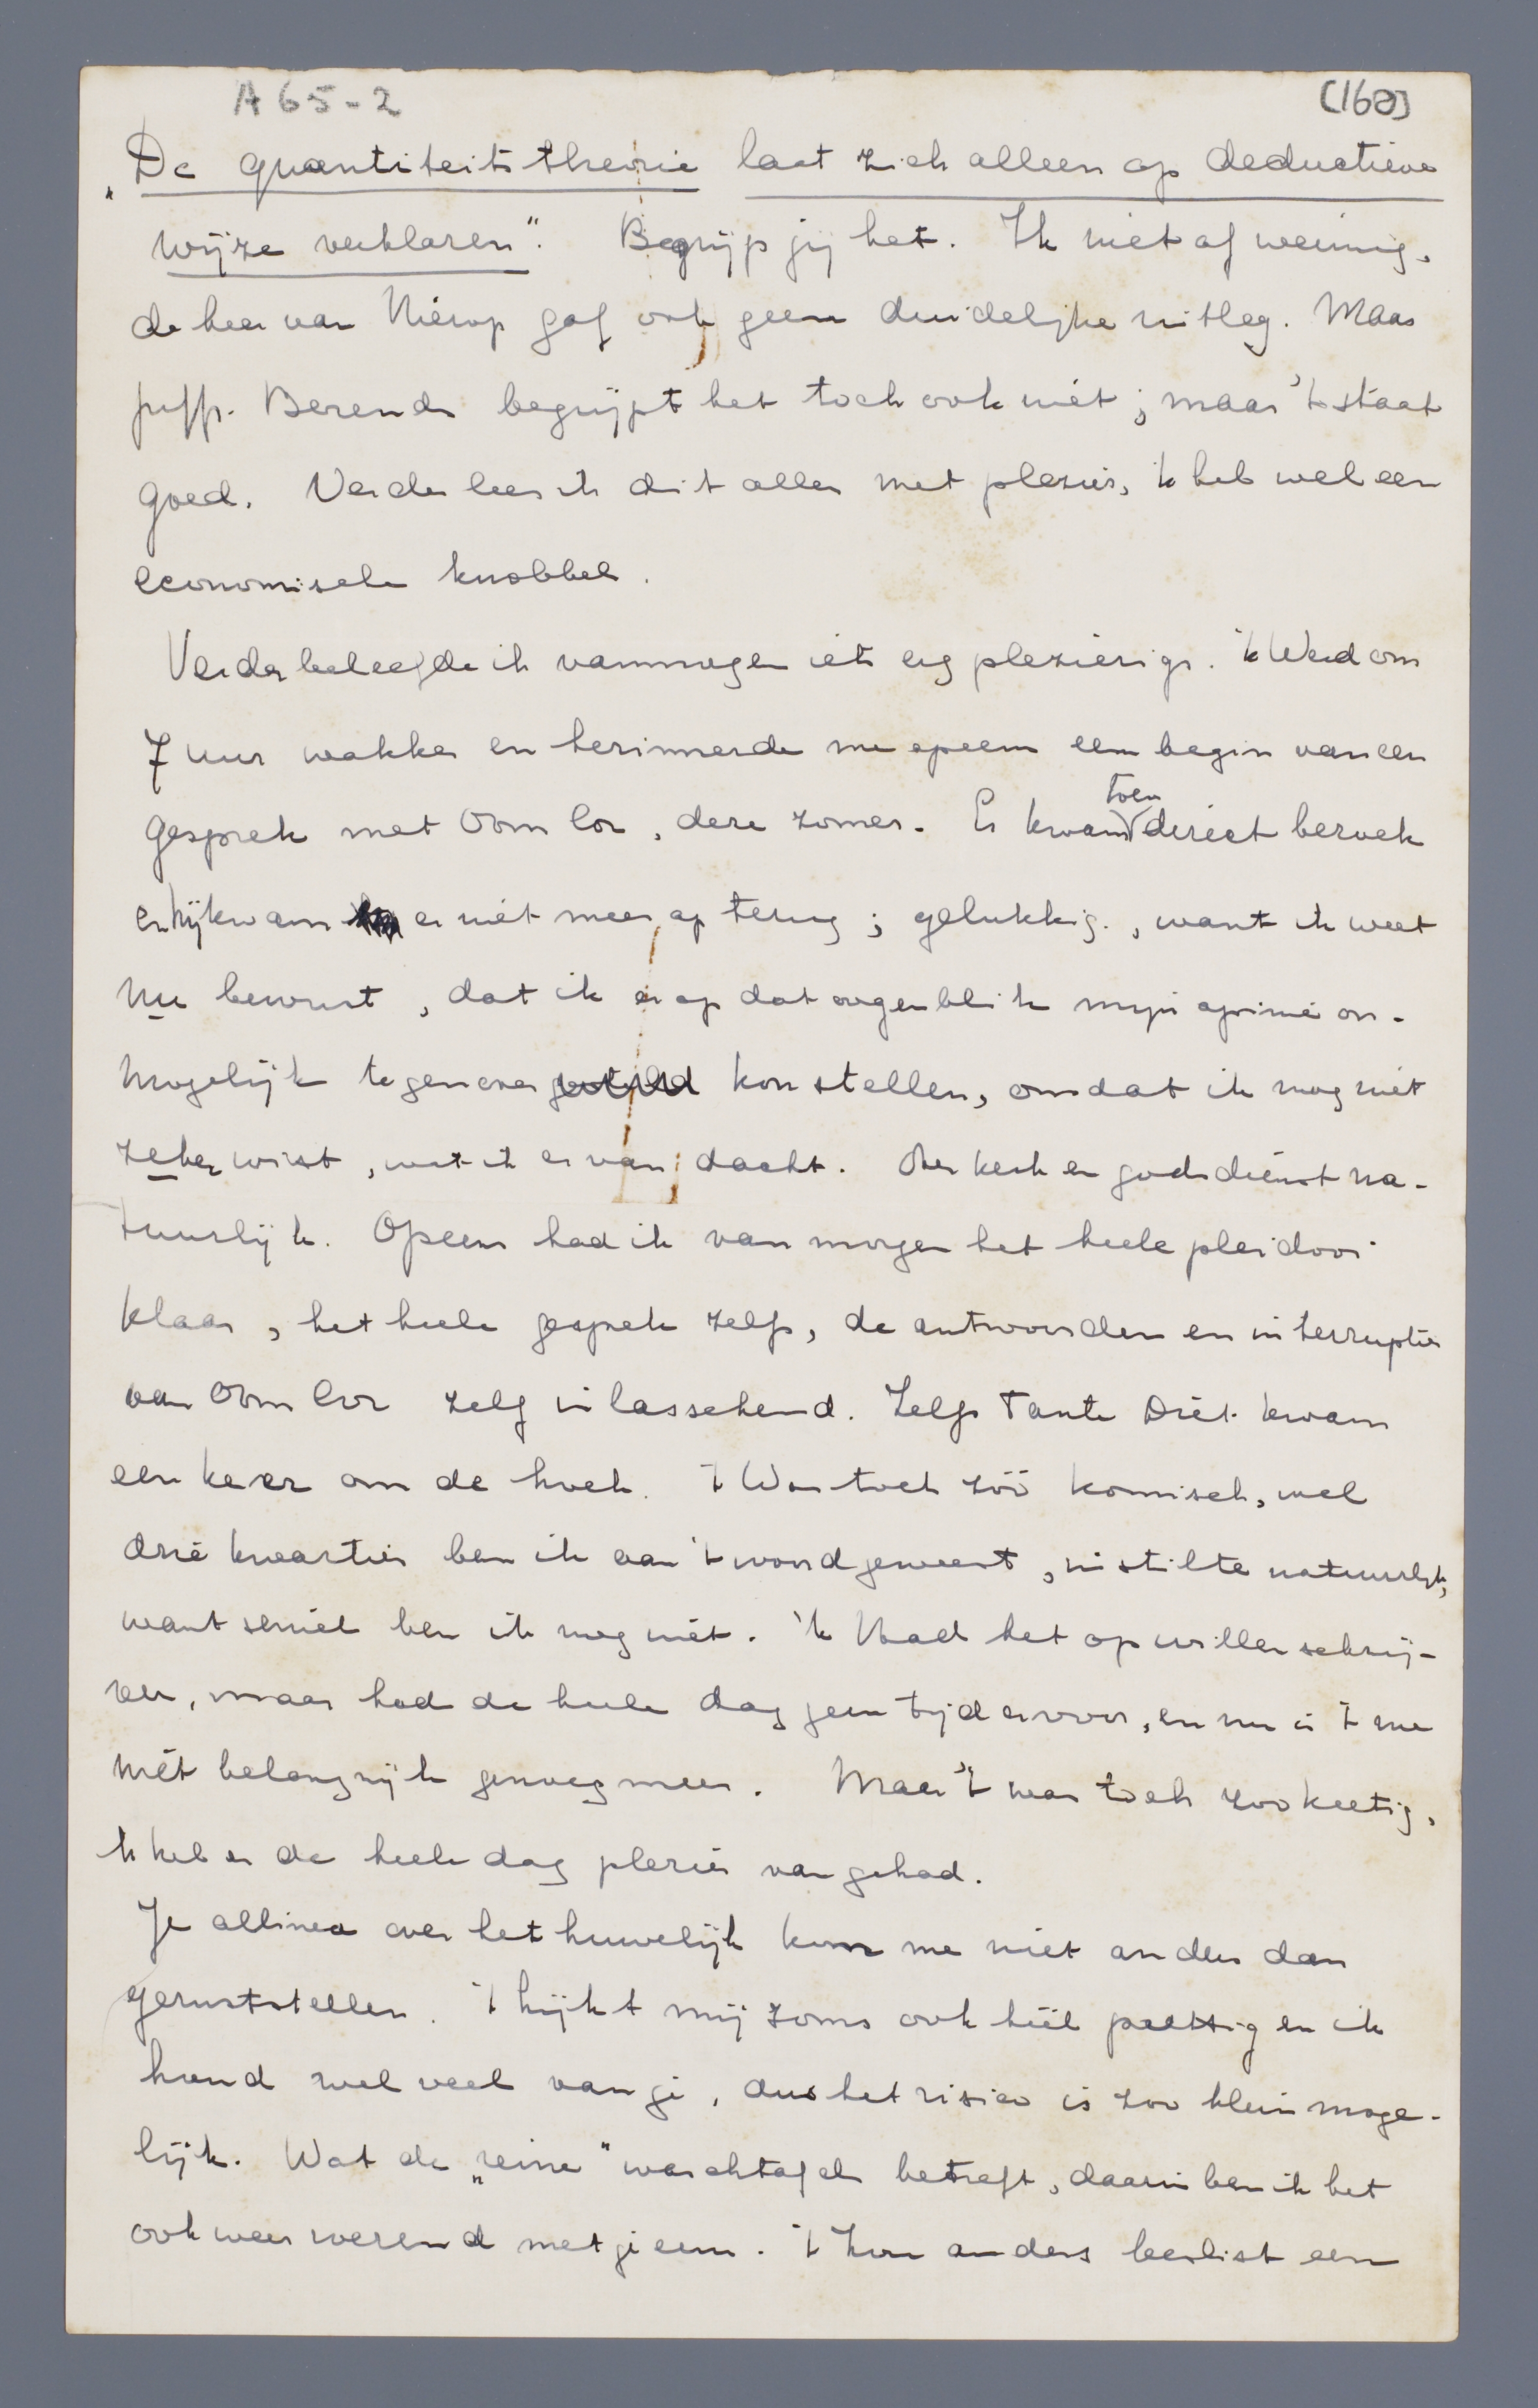 A65-2 (160)
„De quantiteitstheorie laat zich alleen op deductieve
wijze verklaren". Begrijp jij het. Ik niet of weinig,
de heer van Nierop gaf ook geen duidelijke uitleg. Maar
juffr. Berends begrijpt het toch ook niet; maar 't staat
goed. Verder lees ik dit alles met plezier, 'k heb wel een
economische knobbel.
Verder beleefde ik vanmorgen iets erg plezierigs. 'k Werd om
7 uur wakker en herinnerde me opeens een begin van een
gesprek met Oom Cor, deze zomer. Er kwam toen direct bezoek
en hij kwam er niet meer op terug; gelukkig, want ik weet
nu bewust, dat ik er op dat oogenblik mijn opinie on-
mogelijk tegenover gesteld kon stellen, omdat ik nog niet
zeker wist, wat ik er van dacht. Over kerk en godsdienst na-
tuurlijk. Opeens had ik van morgen het heele pleidooi
klaar, het heele gesprek zelfs, de antwoorden en interrupties
van Oom Cor zelf inlasschend. Zelfs Tante Diet kwam
een keer om de hoek. 't Was toch zóó komisch, wel
drie kwartier ben ik aan 't woord geweest, in stilte natuurlijk,
want seniel ben ik nog niet. 'k Had het op willen schrij-
ven, maar had de heele dag geen tijd ervoor, en nu is 't me
niet belangrijk genoeg meer. Maar 't was toch zoo keetig,
'k heb er de heele dag plezier van gehad.
Je allinea over het huwelijk kon me niet anders dan
geruststellen. 't Lijkt mij zoms ook héél prettig en ik
houd wel veel van je, dus het risico is zoo klein moge-
lijk. Wat de „reine" waschtafel betreft, daarin ben ik het
ook weer roerend met je eens. 't Zou anders beslist een